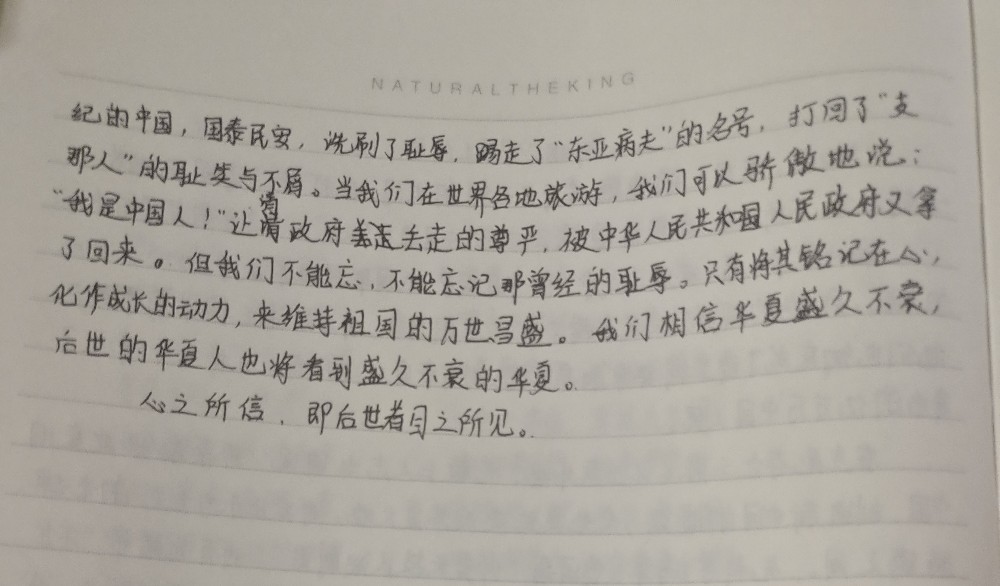 NATURALTHEKING
纪的中国，国泰民安，洗刷了耻辱，踢走了“东亚病夫”的名号，打回了“支
那人”的耻笑与不屑。当我们在世界各地旅游，我们可以骄傲地说：
“我是中国人！”让清政府丢去走的尊严，被中华人民共和国人民政府又拿
了回来。但我们不能忘，不能忘记那曾经的耻辱。只有将其铭记在心，
化作成长的动力，来维持祖国的万世昌盛。我们相信华夏盛久不衰，
后世的华夏人也将看到盛久不衰的华夏。
心之所信，即后世者目之所见。